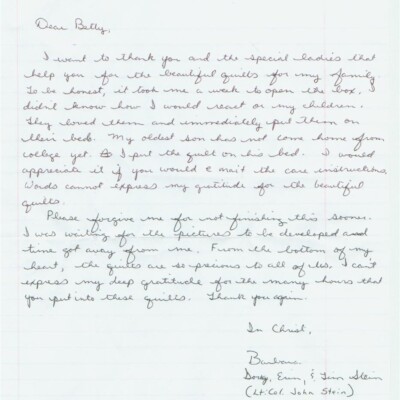 Dear Betty,
I want to thank you and the special ladies that
help you for the beautiful quilts for my family.
To be honest, it took me a week to open the box, I
didn't know how I would react or my children.
They loved them and immediately put them on
their beds. My oldest son has not come home from
college yet. I put the quilt on his bed. I would
appreciate it if you would e mail the care instructions.
Words cannot express my gratitude for the beautiful
quilts.
Please forgive me for not finishing this sooner.
I was waiting for the pictures to be developed and
time got away from me. From the bottom of my
heart, the quilts are so precious to all of us. I can't
express my deep gratitude for the many hours that
you put into these quilts. Thank you again.
In Christ,
Barbara
Erin, & Stein
(Lt. Col. John Stein)